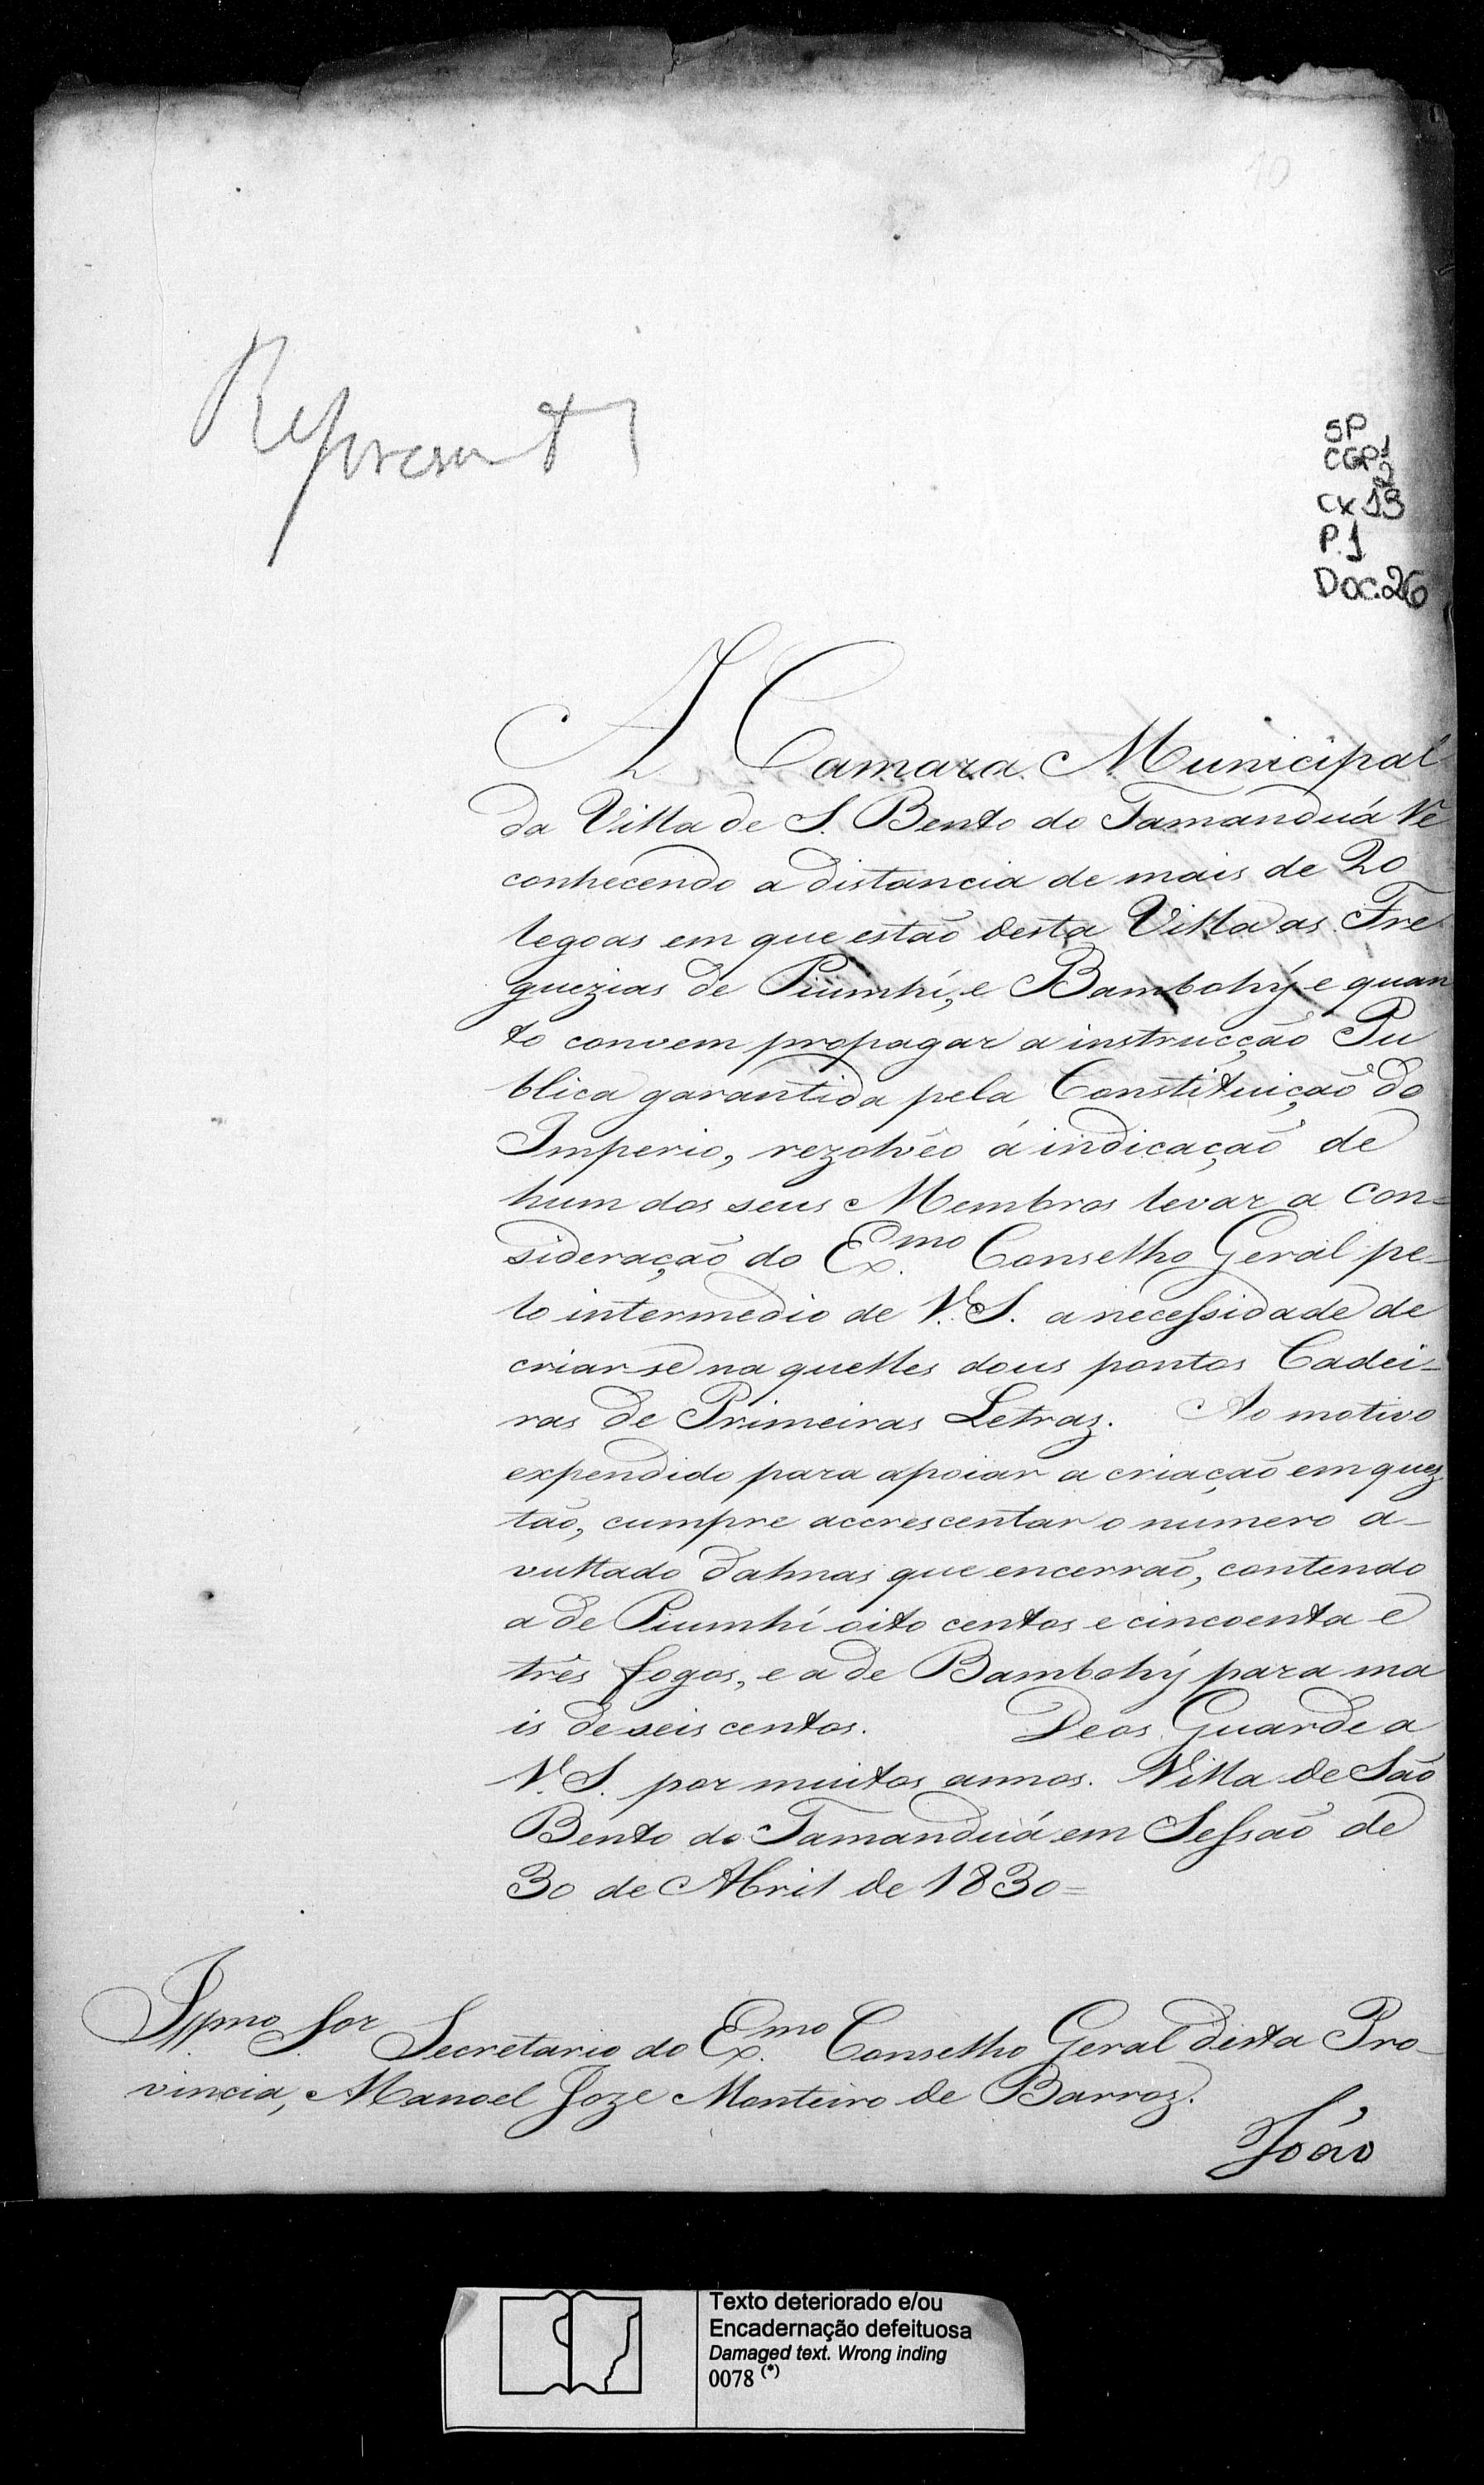 10
Represent
SP
CGP1
2
Cx 13
P.1
Doc.26
A Camara Municipal
da Villa de S. Bento do Tamanduá Re
conhecendo a distancia de mais de 20
legoas em que estão desta Villa as Fre
guezias de Piumhí, e Bambohý e quan
to convem propagar a instrucção Pu
blica garantida pela Constituição do
Imperio, rezolvêo á indicação de
hum dos seus Membros levar a con=
sideração do Ex.mo Conselho Geral pe-
lo intermedio de V.S. a necessidade de
criar-se na quelles dous pontos Cadei-
ras de Primeiras Letraz. Ao motivo
expendido para apoiar a criação em quez
tão, cumpre accrescentar o numero a-
vultado dalmas que encerrão, contendo
a de Piumhí oito centos e cincoenta e
três fogos, e a de Bambohý para ma
is de seis centos. Deos Guarde a
V.S. por muitos annos. Villa de São
Bento do Tamanduá em Sessão de
30 de Abril de 1830=
Illmo Sor Secretario do Ex.mo Conselho Geral desta Pro-
vincia, Manoel Joze Monteiro de Barroz.
João
Texto deteriorado e/ou
Encadernação defeituosa
Damaged text. Wrong inding
0078 (*)